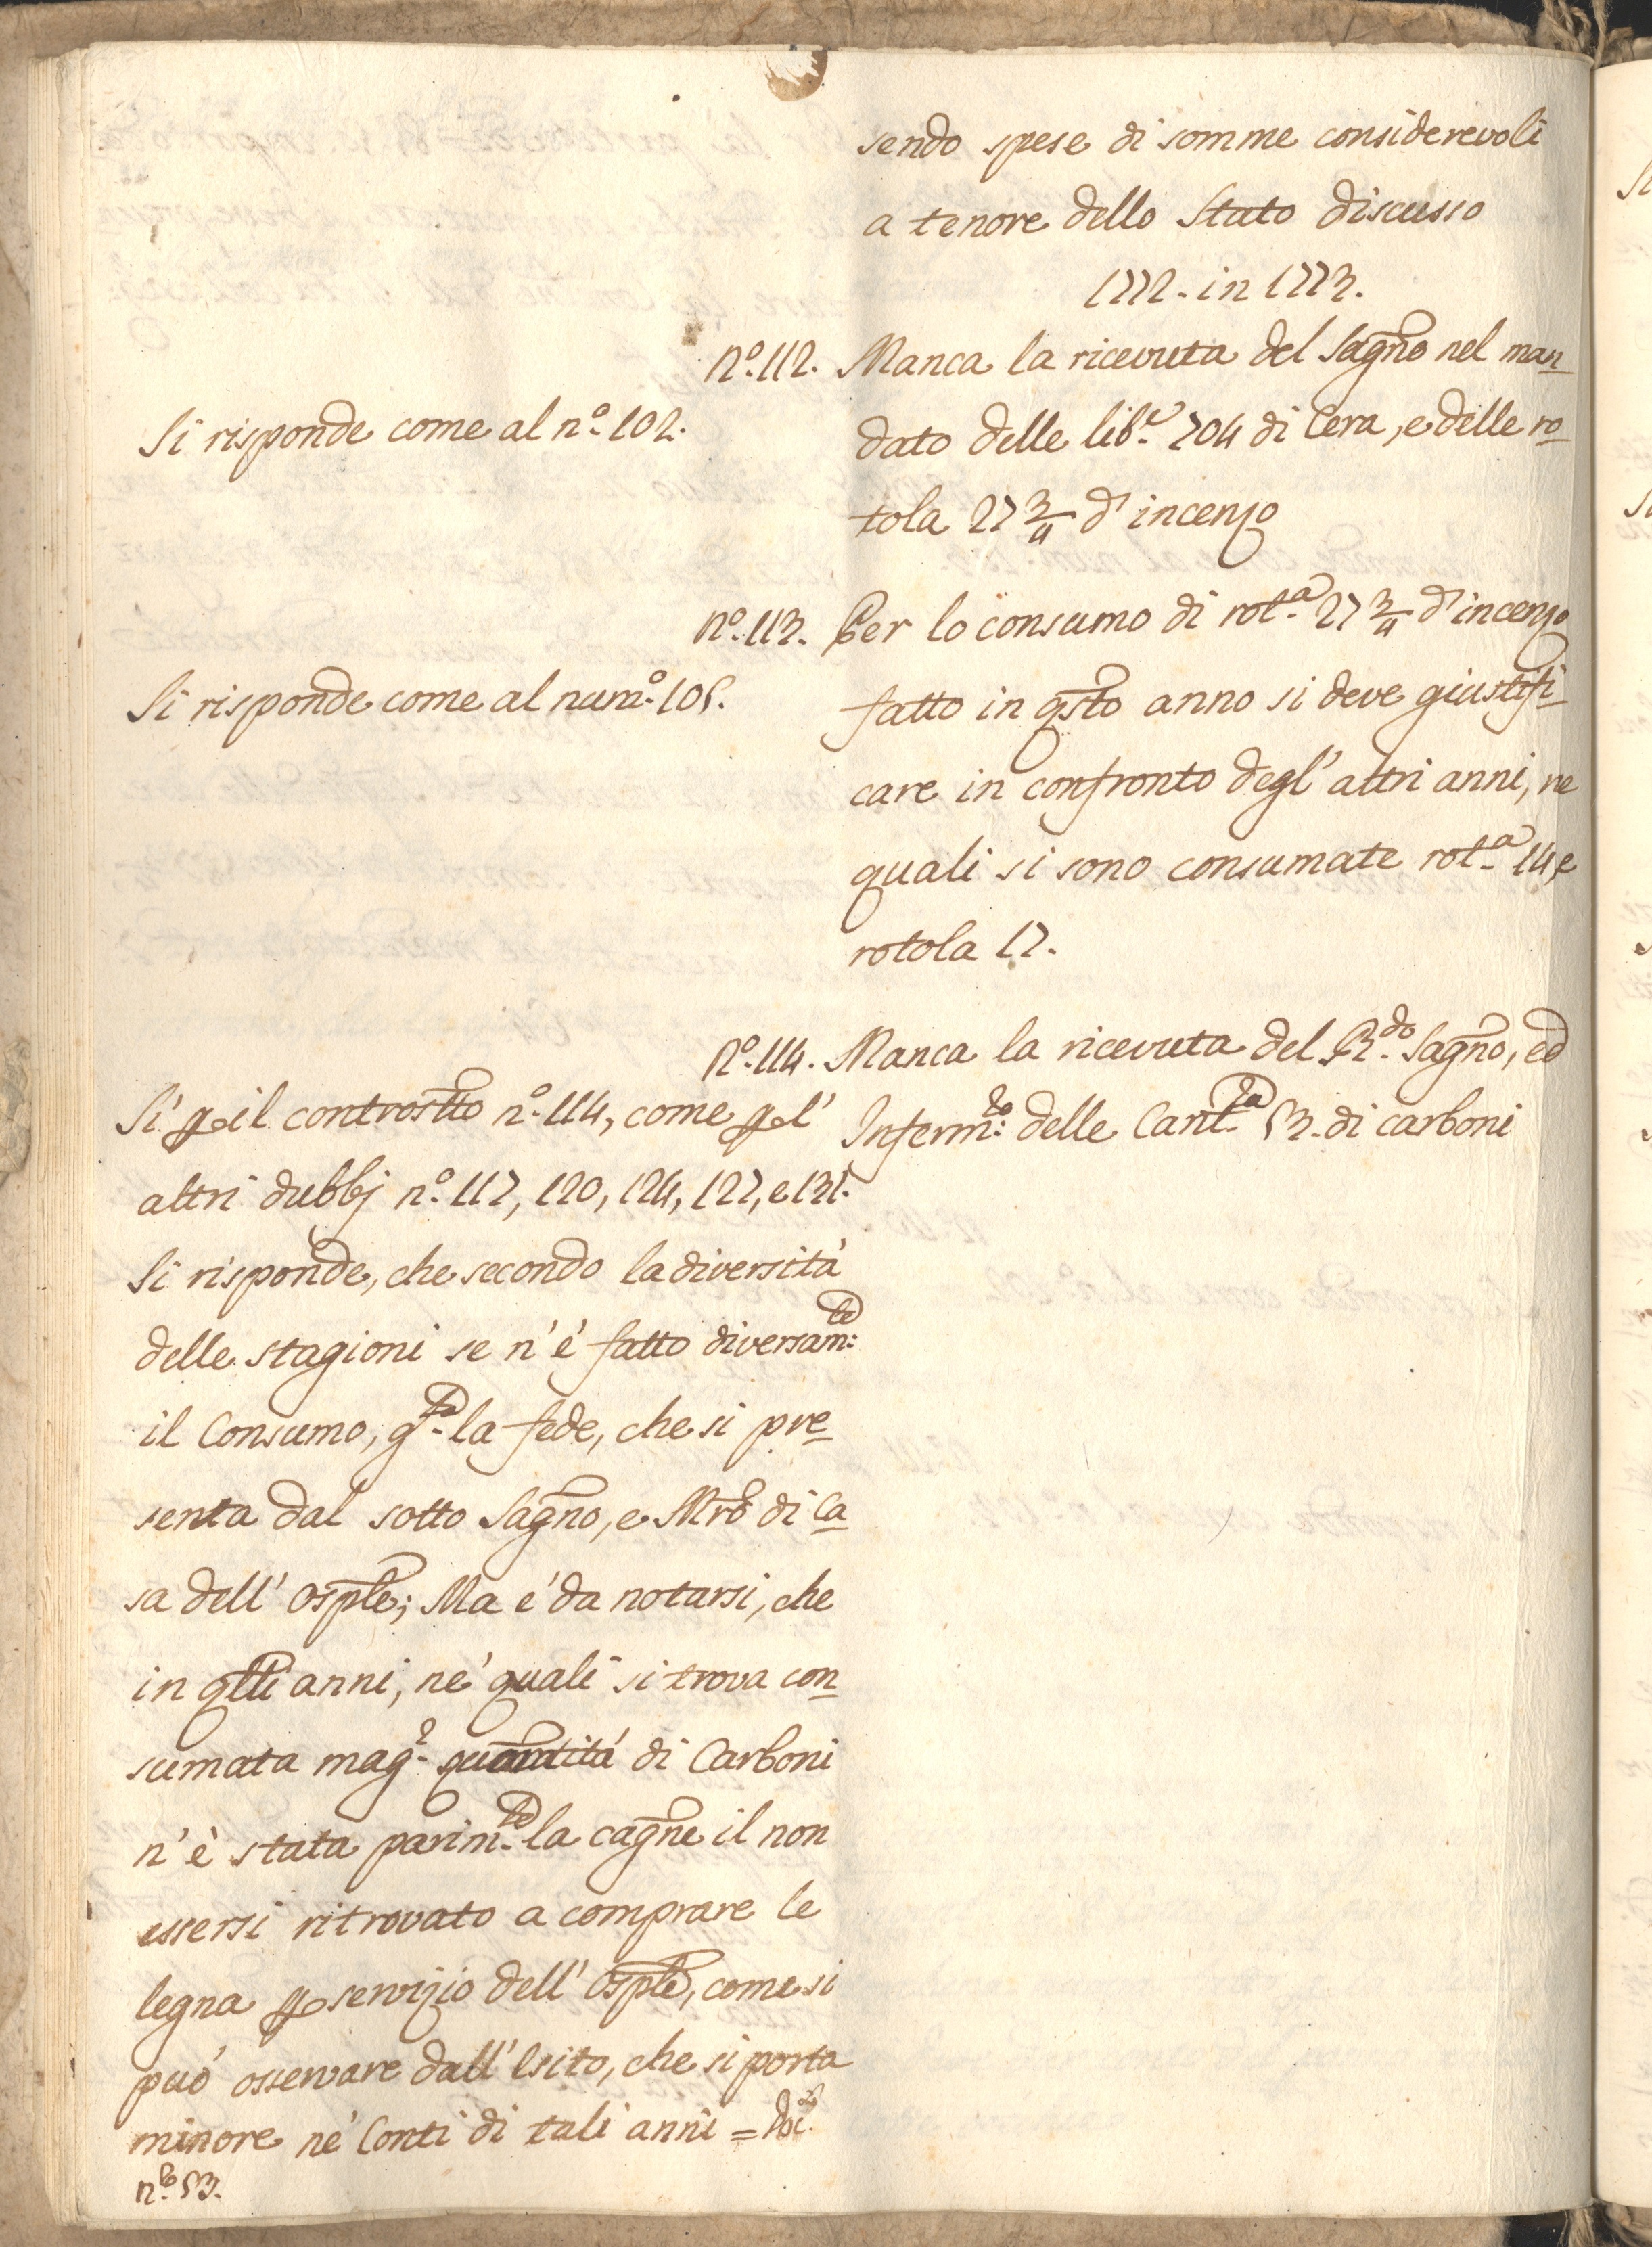 sendo spese di somme considerevoli
a tenore dello Stato discusso
1772. in 1773.
N.º 112. Manca la ricevuta del Sagño nel man
dato delle lib.e 704 di Cera, e delle ro
tola 27 3/4 d'incenso
N.º 113. Per lo consumo di rot.a 27 3/4 d'incenso
fatto in qsto anno si deve giustifi
care in confronto degl' altri anni, ne
quali si sono consumate rot.a 14, e
rotola 17.
N.º 114. Manca la ricevuta del R.do Sagño, ed
Inferm:ro delle Cant.ra 53. di carboni
Si risponde come al n.º 102.
Si risponde come al num.º 105.
Sí p il controstto n.º 114, come p l'
altri dubbj n.º 117, 120, 124, 127, e 131.
Si risponde, che secondo la diversità
delle stagioni se n'è fatto diversam:te
il Consumo, g.ta la fede, che si pre
senta dal sotto Sagño, e Mro di Ca
sa dell' Osple; Ma é da notarsi, che
in qlli anni, ne' quali si trova con
sumata mag.e quantitá di Carboni
n'è stata parim.te la cagñe il non
essersi ritrovato a comprare le
legna p servizio dell' Osple, come si
può osservare dall' Esito, che si porta
minore ne' Conti di tali anni =
n.º 53.